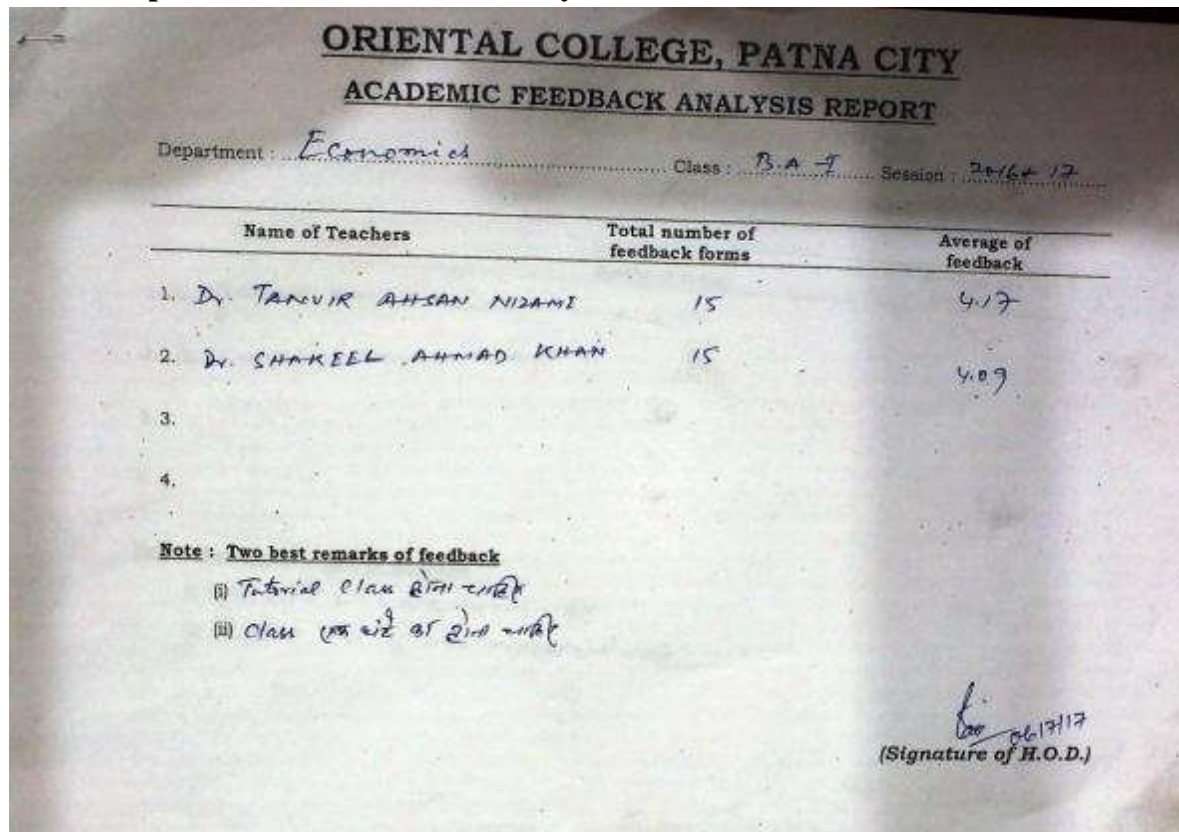 ORIENTAL COLLEGE, PATNA CITY
ACADEMIC FEEDBACK ANALYSIS REPORT
Department : Economics Class : B.A-I Session : 2016-17
Name of Teachers Total number of feedback forms Average of feedback
1. Dr. TANVIR AHSAN NIZAMI 15 4.17
2. Dr. SHAKEEL AHMAD KHAN 15 4.09
3.
4.
Note : Two best remarks of feedback
(i) Tutorial Class होना चाहिए
(ii) Class एक घंटे का होना चाहिए
06/7/17
(Signature of H.O.D.)